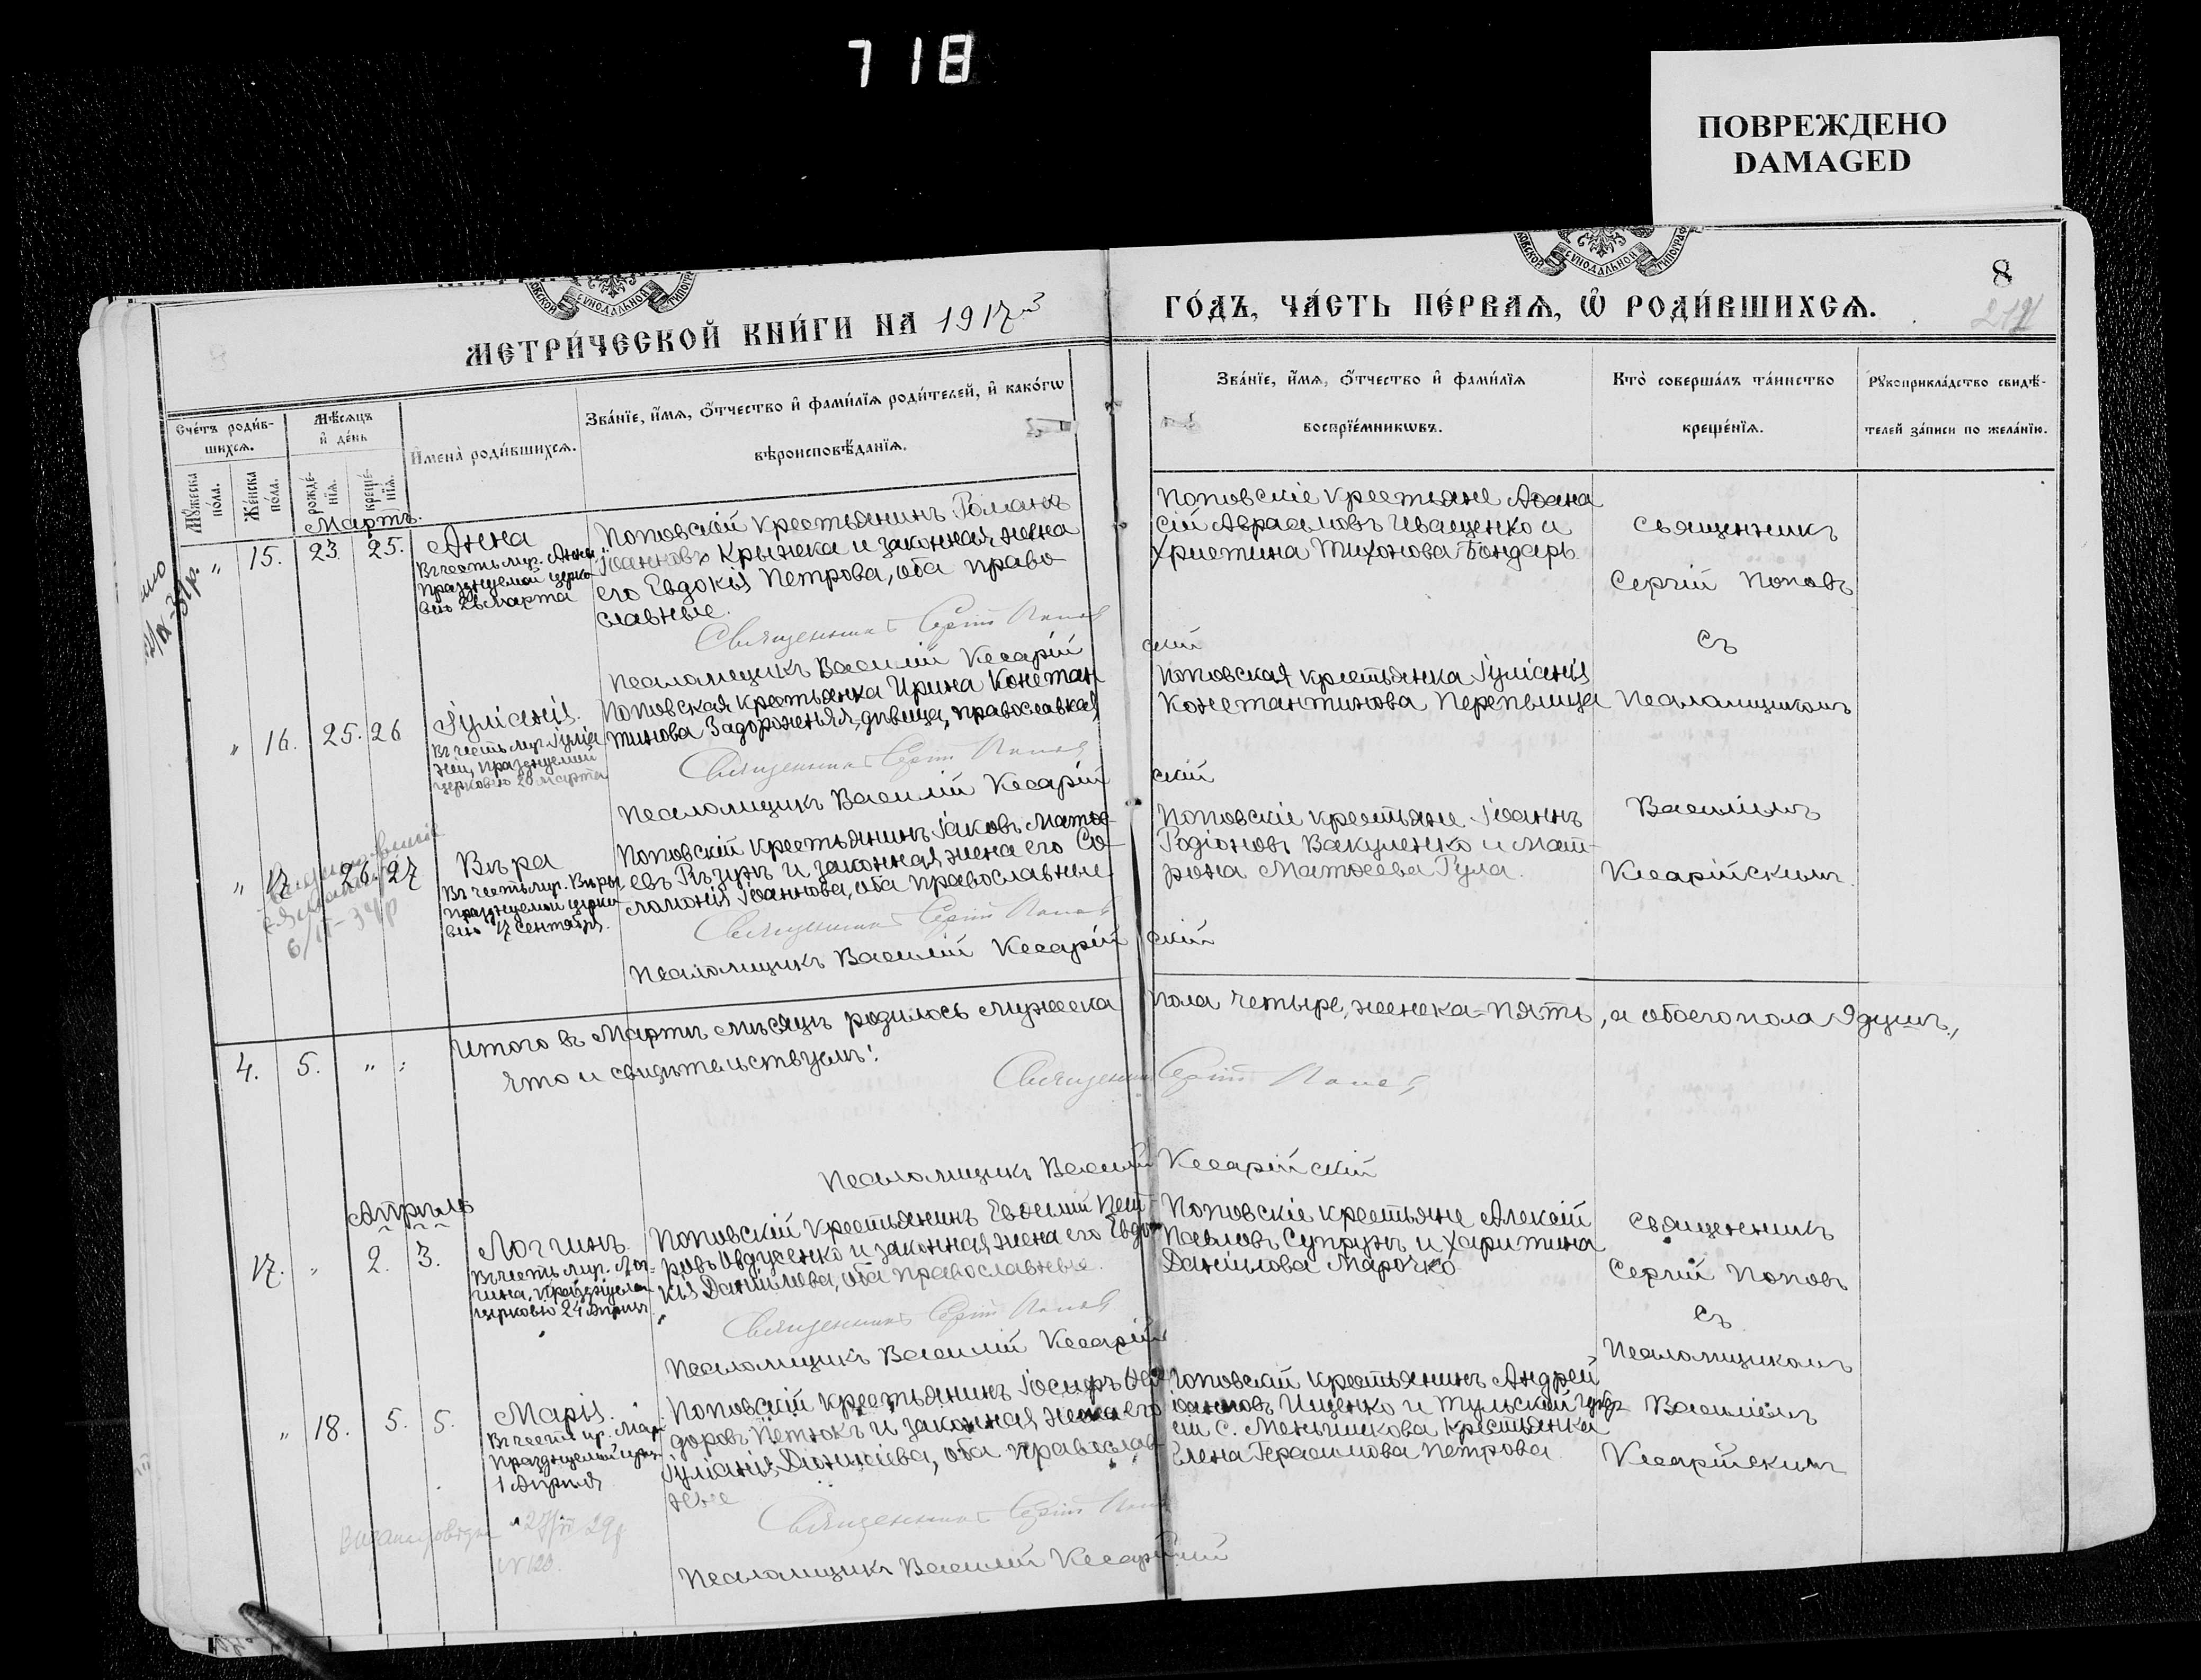 718
ПОВРЕЖДЕНО
DAMAGED
8
МЕТРИ́ЧЕСКОЙ КНИ́ГИ НА 1917й
ГО́ДЪ, ЧА́СТЬ ПЕ́РВАѦ, Ѽ РОДИ́ВШИХСѦ.
Сче́тъ роди́в-
шихсѧ.
Мꙋ́жеска по́ла.
Же́нска по́ла.
Мѣ́сѧцъ
и҆ де́нь
рожде́-
нїѧ.
креще́-
нїѧ.
И҆мена̀ роди́вшихсѧ.
Зва́нїе, и҆́мѧ, ѻ҆́тчество и҆ фами́лїѧ роди́телей, и҆ како́гѡ
вѣроисповѣ́данїѧ.
Зва́нїе, и҆́мѧ, ѻ҆́тчество и҆ фами́лїѧ
воспрїе́мникѡвъ.
Кто̀ соверша́лъ та́инство
креще́нїѧ.
Рꙋкоприкла́дство свидѣ́-
телей за́писи по жела́нїю.
Мартъ.
" 15. 23. 25.
Анна
Въ честь мур. Анны
празднуемой церко-
вью 26 Марта
Поповскій крестьянинъ Романъ
Іоанновъ Крыжека и законная жена
его Евдокія Петрова, оба право-
славные.
Священникъ Сергій Поповъ
Псаломщикъ Василій Кесарійскій
Поповскіе крестьяне Аѳана
сій Авраамовъ Иващенко и
Христина Тихонова Бондарь.
Священникъ
Сергій Поповъ
съ
Псаломщикомъ
Василіемъ
Кесарійскимъ.
" 16. 25. 26
Іуліанія.
Въ честь мур. Іуліа
ніи, празднуемой
церковью 20 марта
Поповская крестьянка Ирина Констан
тинова Задорожняя, дѣвица, православная
Священникъ Сергій Поповъ
Псаломщикъ Василій Кесарійскій
Поповская крестьянка Іуліанія
Константинова Перепелица
" 17. 26. 27
Вѣра
Въ честь мур. Вѣры
празднуемой церко
вью 17 Сентября.
Поповскій крестьянинъ Іаковъ Матѳе-
евъ Рѣзунъ и законная жена его Со-
ломонія Іоаннова, оба православные.
Священникъ Сергій Поповъ
Псаломщикъ Василій Кесарійскій
Поповскіе крестьяне Іоаннъ
Родіоновъ Вакуленко и Мат-
рона Матѳеева Гула.
4. 5. " :
Итого въ Мартѣ мѣсяцѣ родилось мужеска пола четыре, женска-пять, а обоего пола 9 душъ,
что и свидѣтельствуемъ:
Священникъ Сергій Поповъ
Псаломщикъ Василій Кесарійскій
Апрѣль
17. " 2. 3.
Логгинъ
Въ честь мур. Лог-
гина, празднуем.
церковью 24 Апрѣл.
Поповскій крестьянинъ Евѳимій Пет-
ровъ Овдусенко и законная жена его Евдо
кія Даніилова, оба православные.
Священникъ Сергій Поповъ
Псаломщикъ Василій Кесарій
Поповскіе крестьяне Алексій
Павловъ Супрунъ и Харитина
Даніилова Марочко
Священникъ
Сергій Поповъ
съ
Псаломщикомъ
Василіемъ
Кесарійскимъ
" 18. 5. 5.
Марія.
Въ честь пр. Мар.
празднуемой церк.
1 Апрѣля
Поповскій крестьянинъ Іосифъ Ѳео
доровъ Петюкъ и законная жена его
Іуліанія Діонисіева, оба православ-
ные
Священникъ Сергій Поповъ
Псаломщикъ Василій Кесарійскій
Поповскій крестьянинъ Андрей
Іоанновъ Ищенко и Тульской губер
ніи с. Меньшикова крестьянка
Елена Герасимова Петрова